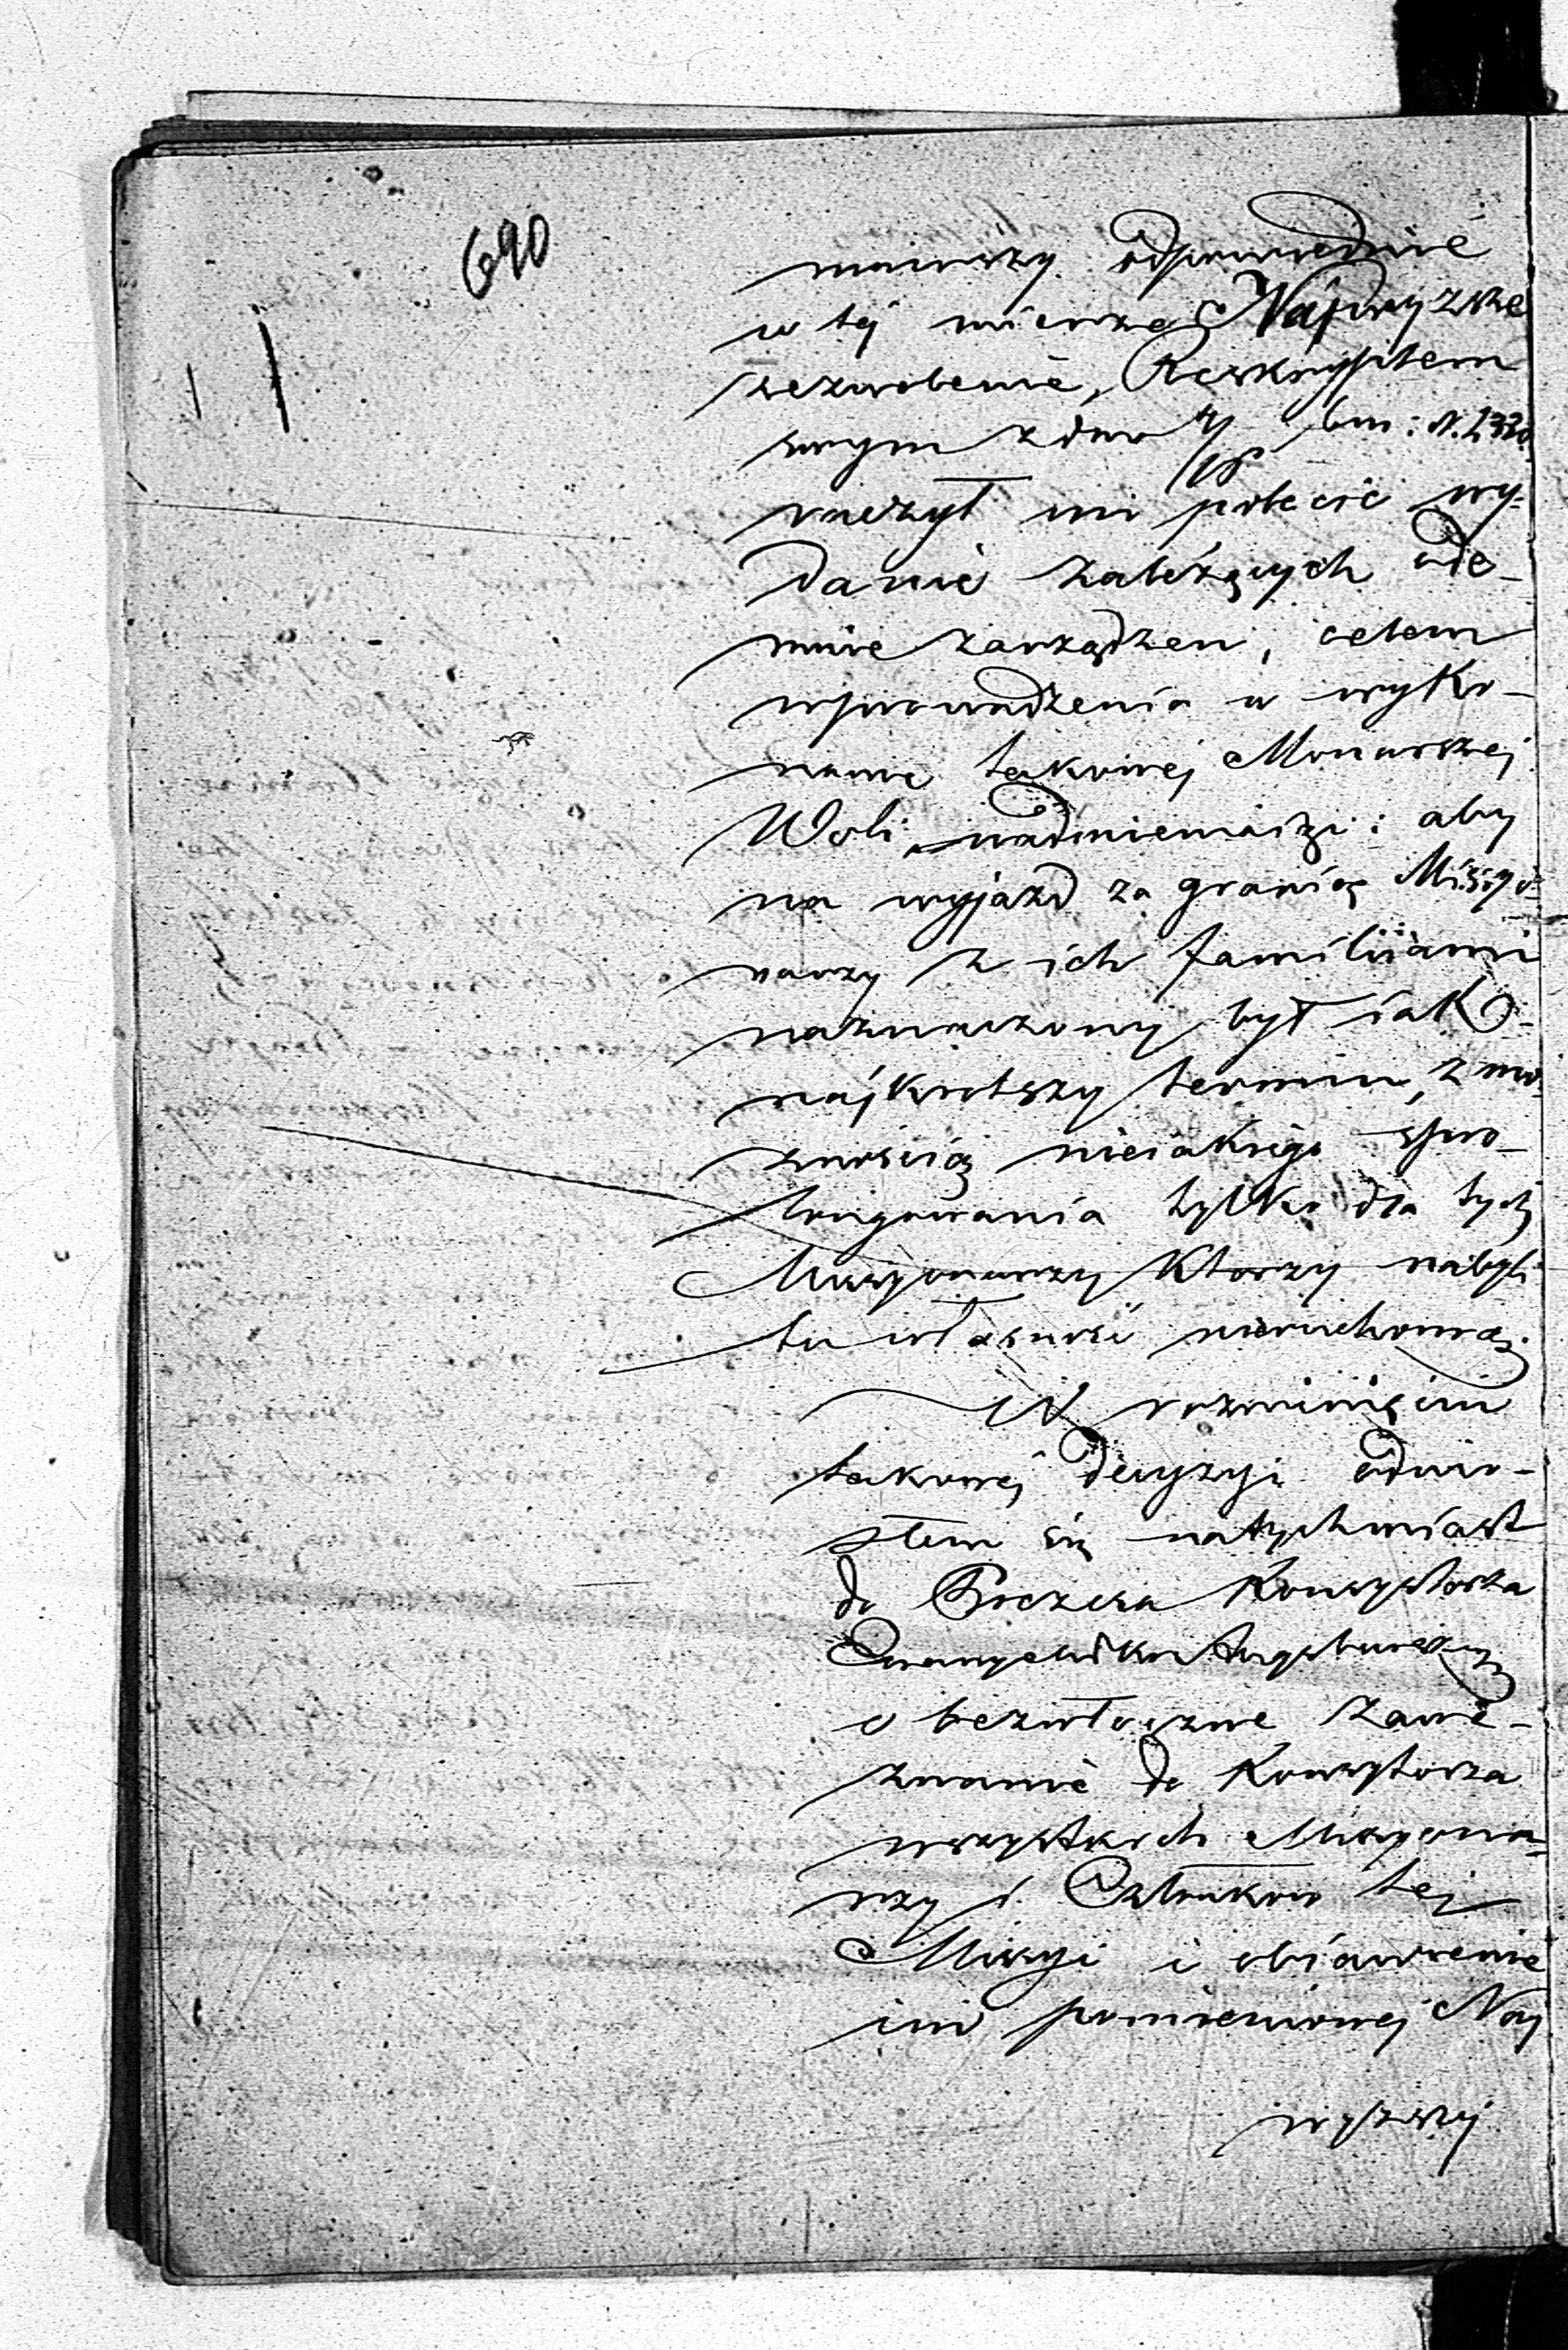 690
mawszy odpowiednie
w tej mierze Najwyższe
zezwolenie, Reskryptem
swym z dnia 4/16 bm: N. 1330
raczył mi polecić wy-
danie zależących ode-
mnie zarządzeń, celem
wprowadzenia w wyko-
nanie takowej Monarszej
Woli, nadmieniaiąc: aby
na wyjazd za granicę Missyo-
narzy z ich familiiami
naznaczony był iak
najkrótszy termin, z mo-
żnością nieiakiego pro-
longowania tylko dla tych
Missyonarzy którzy nabyli
tu własność nieruchomą.
W rozwinięciu
takowej decyzyi odnio-
słem się natychmiast
do Prezesa Konsystorza
Ewangelicko Augsburskiego
o bezwłoczne zawe-
zwanie do Konsystorza
wszystkich Missyona-
rzy i Członków tej
Missyi i obiawienie
im pomienionej Naj
wyższej